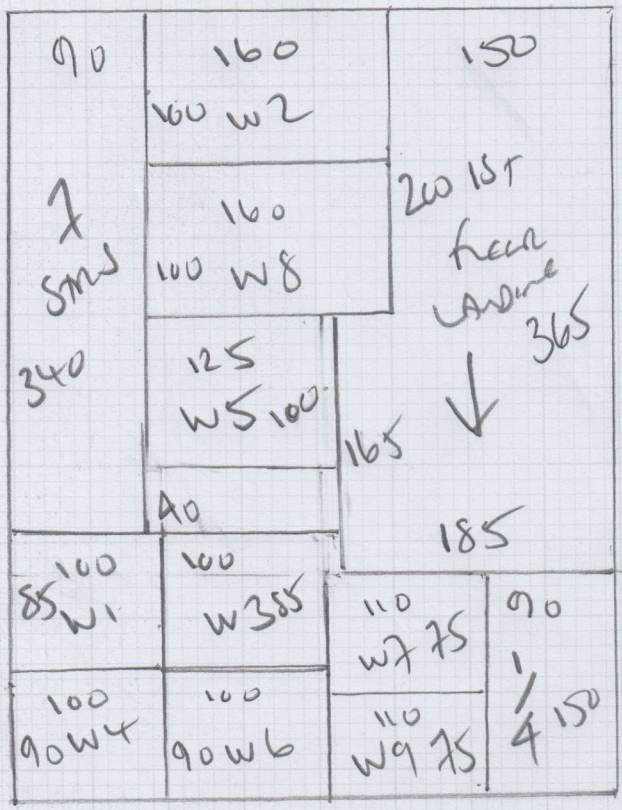 90
7
STAIRS
340
160
100 W2
160
100 W8
125
W5 100
40
150
200 1ST
FLOOR
LANDING
365
165
185
100
85 W1
100
W3 85
100
90 W4
100
90 W6
110
W7 75
110
W9 75
90
1/4 150